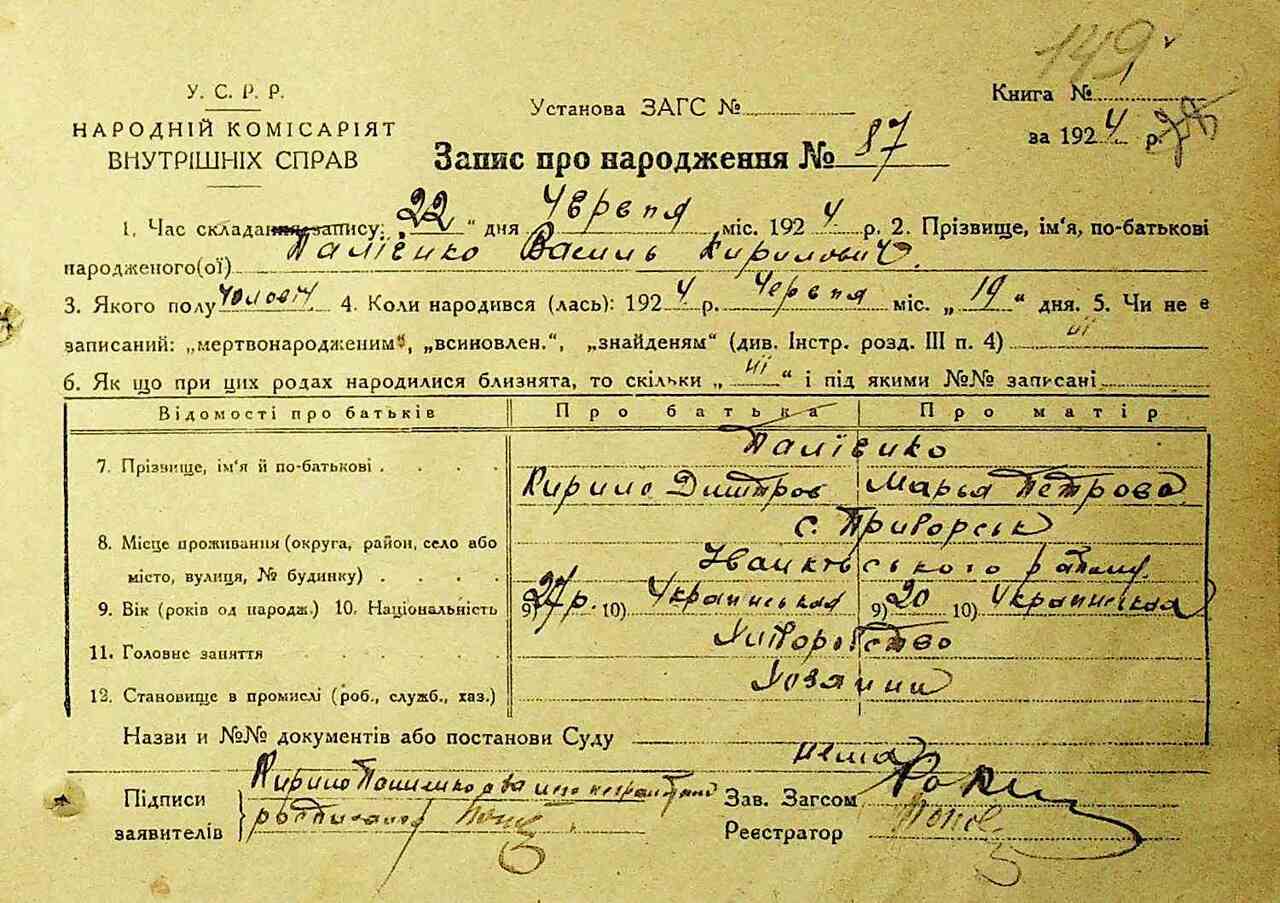 149
У. С. Р. Р.
НАРОДНІЙ КОМІСАРІЯТ
ВНУТРІШНІХ СПРАВ
Установа ЗАГС №
Книга №
за 1924 р.
Запис про народження № 87
1. Час складання запису: „22“ дня Червня міс. 1924 р. 2. Прізвище, ім'я, по-батькові
народженого(ої) Палієнко Василь Кирилович.
3. Якого полу Чоловіч 4. Коли народився (лась): 1924 р. Червня міс. „19“ дня. 5. Чи не є
записаний: „мертвонародженим“, „всиновлен.“, „знайденям“ (див. Інстр. розд. III п. 4) ні
6. Як що при цих родах народилися близнята, то скільки „ні“ і під якими №№ записані
Відомості про батьків Про батька Про матір
7. Прізвище, ім'я й по-батькові . . . . Палієнко
Кирило Дмитров Марья Петрова
8. Місце проживання (округа, район, село або с. Приборськ
місто, вулиця, № будинку) . . . . Іванківського району.
9. Вік (років од народж.) 10. Національність 9) 27 р. 10) Украинськая 9) 20 10) Украинская
11. Головне заняття Хліборобство
12. Становище в промислі (роб., служб., хаз.) Хозяини
Назви и №№ документів або постанови Суду нема
Підписи
заявителів
Кирило
Зав. Загсом
Реєстратор